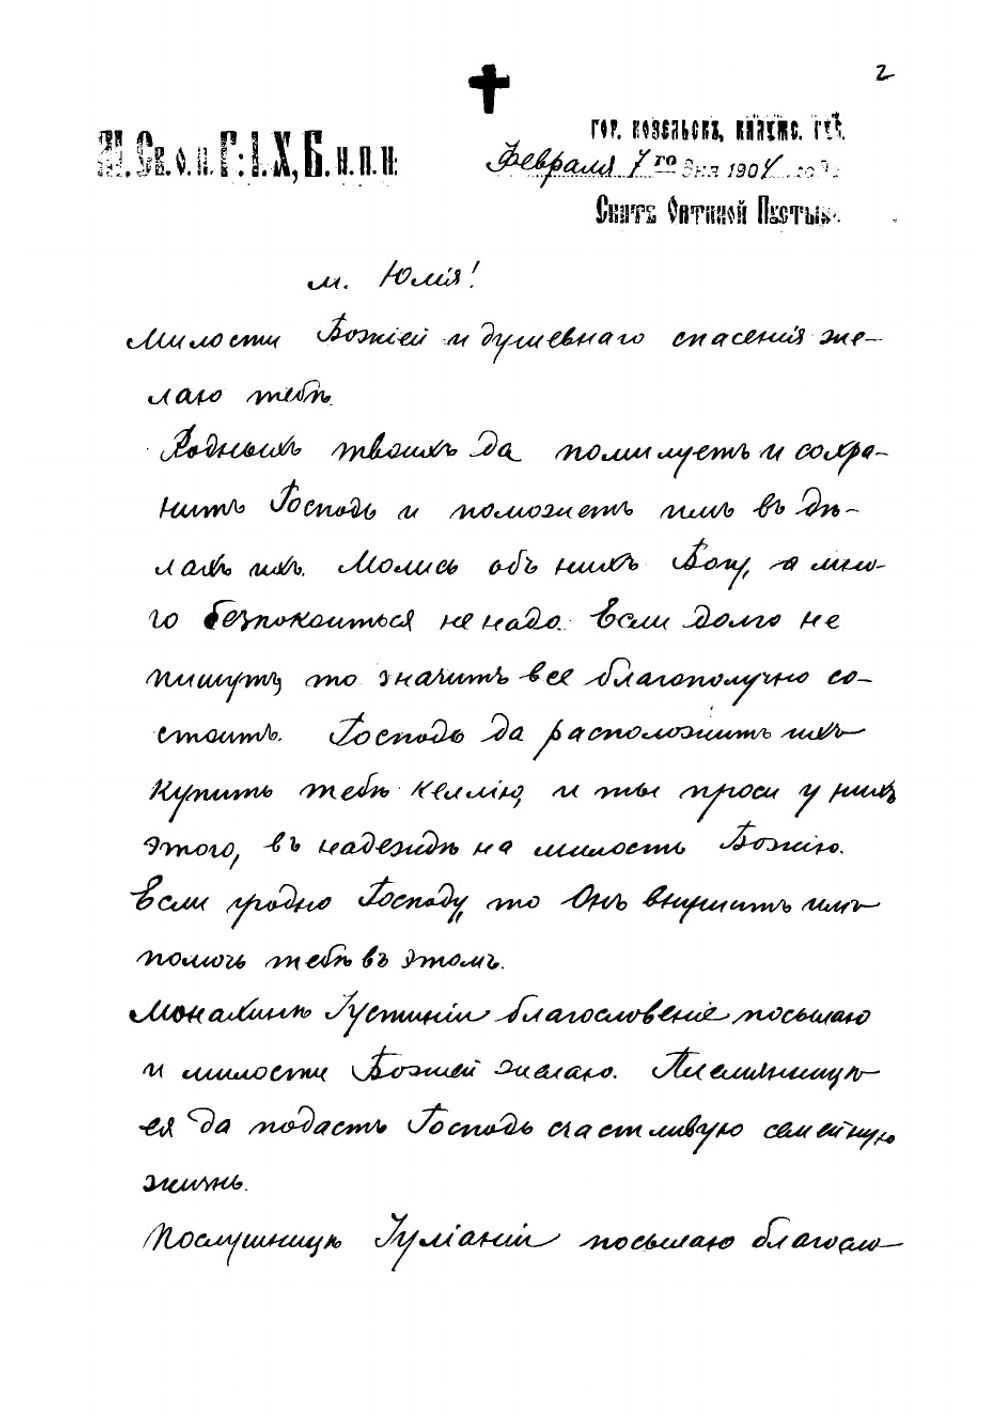 2
М. Св. о. н. Г: І. Х, Б. н. п. н:
гор. Козельскъ, Калужс. губ.
Февраля 7го дня 1904 года
Скитъ Оптиной Пустыни.
м. Юлія!
Милости Божіей и душевнаго спасенія же-
лаю тебѣ.
Родныхъ твоихъ да помилуетъ и сохра-
нитъ Господь и поможетъ имъ въ дѣ-
лахъ ихъ. Молись объ нихъ Богу, а мно-
го безпокоиться не надо. Если долго не
пишутъ, то значитъ все благополучно со-
стоитъ. Господь да расположитъ ихъ
купить тебѣ келлію, и ты проси у нихъ
этого, въ надеждѣ на милость Божію.
Если угодно Господу, то Онъ внушитъ имъ
помочь тебѣ въ этомъ.
Монахинѣ Іустиніи благословеніе посылаю
и милости Божіей желаю. Племянницѣ
ея да подастъ Господь счастливую семейную
жизнь.
Послушницѣ Іуліаніи посылаю благосло-